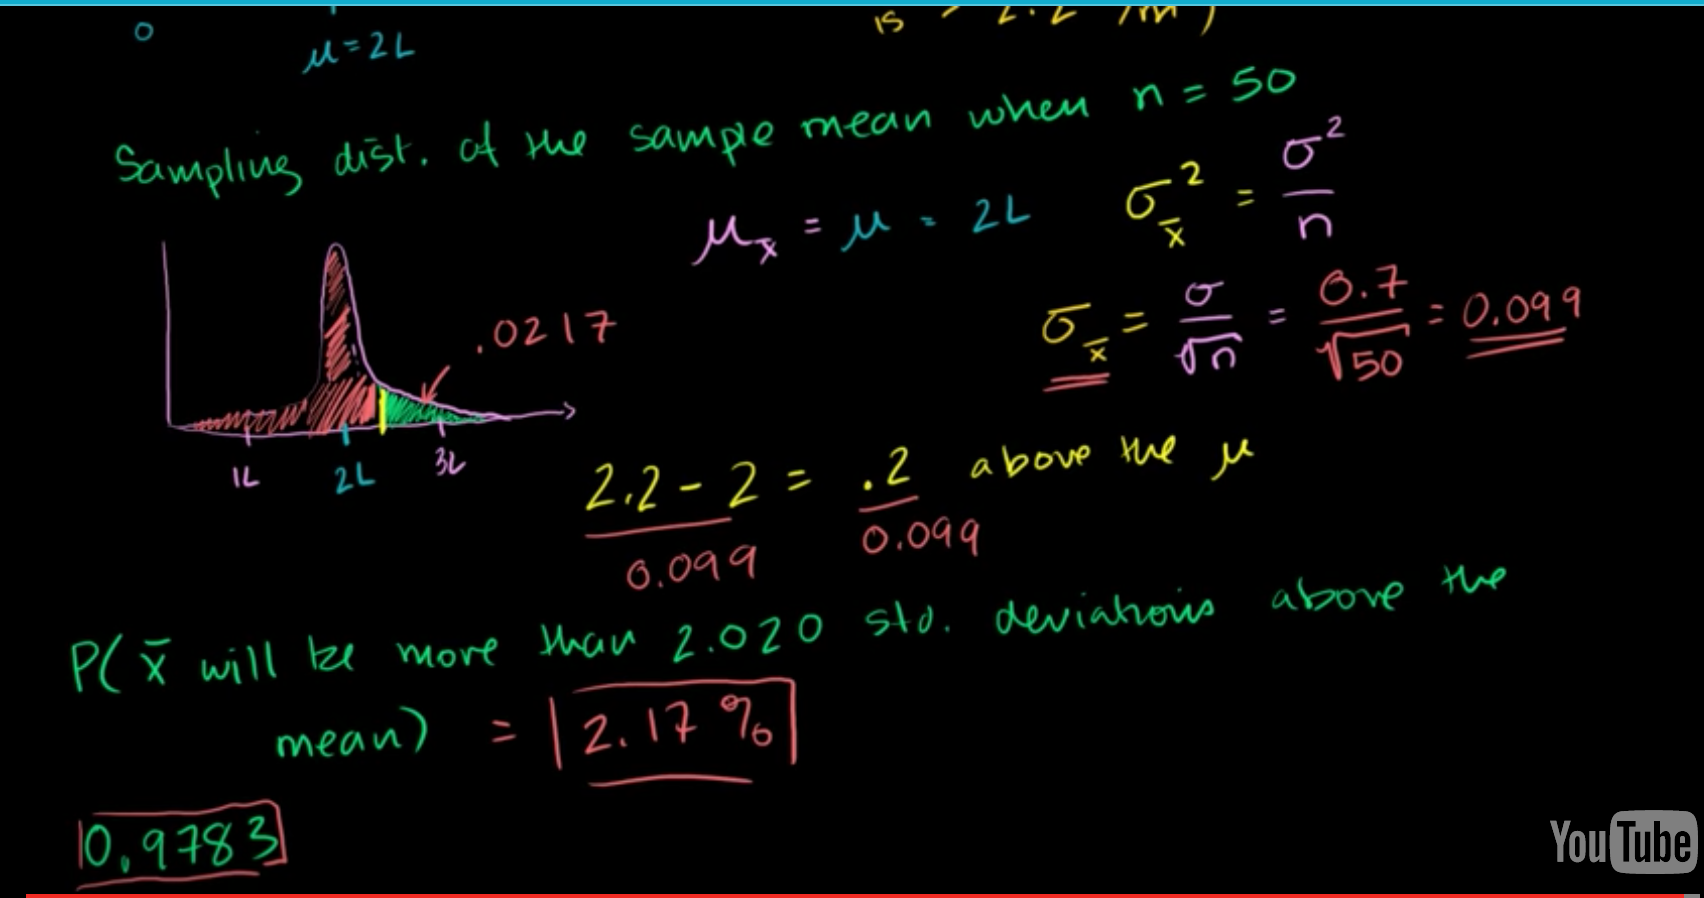 0
μ = 2L
is
Sampling dist. of the sample mean when n = 50
μ_x̄ = μ = 2L
σ_x̄² = σ²/n
σ_x̄ = σ/√n = 0.7/√50 = 0.099
.0217
1L 2L 3L
2.2 - 2 / 0.099 = .2 / 0.099 above the μ
P( x̄ will be more than 2.020 std. deviations above the
mean) = 2.17 %
0.9783
YouTube